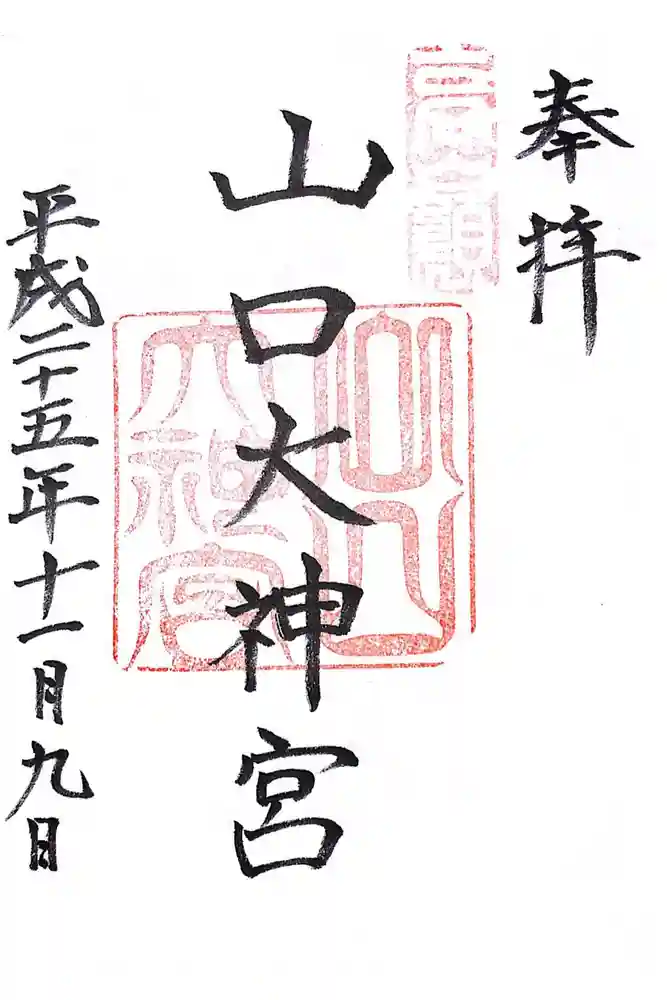 奉拝
山口大神宮
平成二十五年十一月九日
山口大神宮